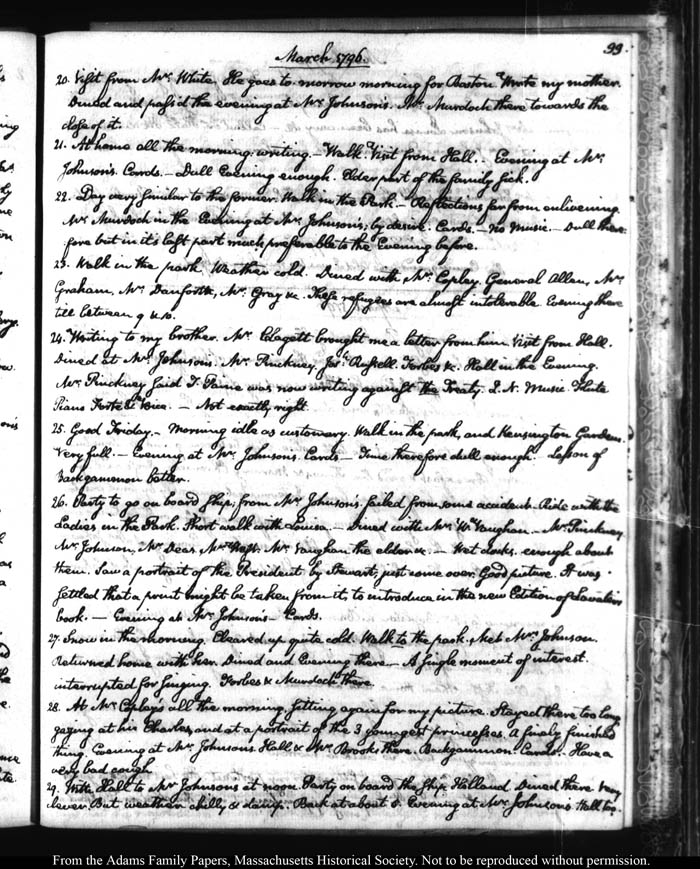 99.
March 1796.
20. Visit from Mr. White. He goes to-morrow morning for Boston. Wrote my mother.
Dined and pass'd the evening at Mr. Johnson's. Mr. Murdoch there towards the
close of it.
21. At home all the morning writing. — Walk. Visit from Hall. — Evening at Mr.
Johnson's. Cards. — Dull Evening enough. Elder part of the family sick.
22. Day very similar to the former. Walk in the Park. — Reflections far from enlivening.
Mr. Murdoch in the Evening at Mr. Johnson's, by desire. Cards. — No Music. — Dull there-
fore but in it's last part much preferable to the Evening before.
23. Walk in the park. Weather cold. Dined with Mr. Copley. General Allen, Mr.
Graham, Mr. Danforth, Mr. Gray &c. These refugees are almost intolerable. Evening there
till between 9 & 10.
24. Writing to my brother. Mr. Clagett brought me a letter from him. Visit from Hall.
Dined at Mr. Johnson's. Mr. Pinckney. Jos: Russell. Forbes &c. Hall in the Evening.
Mr. Pinckney said T. Paine was now writing against the Treaty. Q.N. Music. Flute
Piano Forte & Voice. — Not exactly right.
25. Good Friday. — Morning idle as customary. Walk in the park, and Kensington Gardens.
Very full. — Evening at Mr. Johnson's. Cards — Time therefore dull enough. Lesson of
Backgammon better.
26. Party to go on board ship, from Mr. Johnson's. failed from some accident. Ride with the
Ladies in the Park. Short walk with Louisa. — Dined with Mr. Wm. Vaughan. — Mr. Pinckney
Mr. Johnson, Mr. Deas, Mr. West. Mr. Vaughan the elder &c. — Wet docks. enough about
them. Saw a portrait of the President by Stewart, just come over. Good picture. It was
settled that a print might be taken from it, to introduce in the new Edition of Lavater's
book. — Evening at Mr. Johnson's — Cards.
27. Snow in the morning. Cleared up quite cold. Walk to the park. Met Mr. Johnson.
Returned home with him. Dined and Evening there. — A single moment of interest.
interrupted for singing. Forbes & Murdoch there.
28. At Mr. Copley's all the morning, sitting again for my picture. Stayed there too long
gazing at his Charles, and at a portrait of the 3 youngest princesses. A finely finished
thing. Evening at Mr. Johnson's. Hall & Mr. Brooks there. Backgammon. Cards. Have a
very bad cough.
29. With Hall to Mr. Johnson's at noon. Party on board the ship Holland. Dined there. Very
clever. But weather chilly & damp. Back at about 8. Evening at Mr. Johnson's. Hall too.
From the Adams Family Papers, Massachusetts Historical Society. Not to be reproduced without permission.